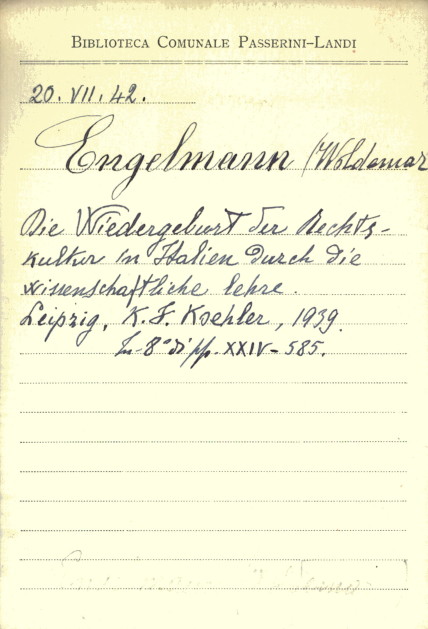 BIBLIOTECA COMUNALE PASSERINI-LANDI
20. VII. 42.
Engelmann (Woldemar
Die Wiedergeburt der Rechts-
kultur in Italien durch die
wissenschaftliche lehre.
Leipzig, K. F. Koehler, 1939.
In-8° di pp. XXIV-585.